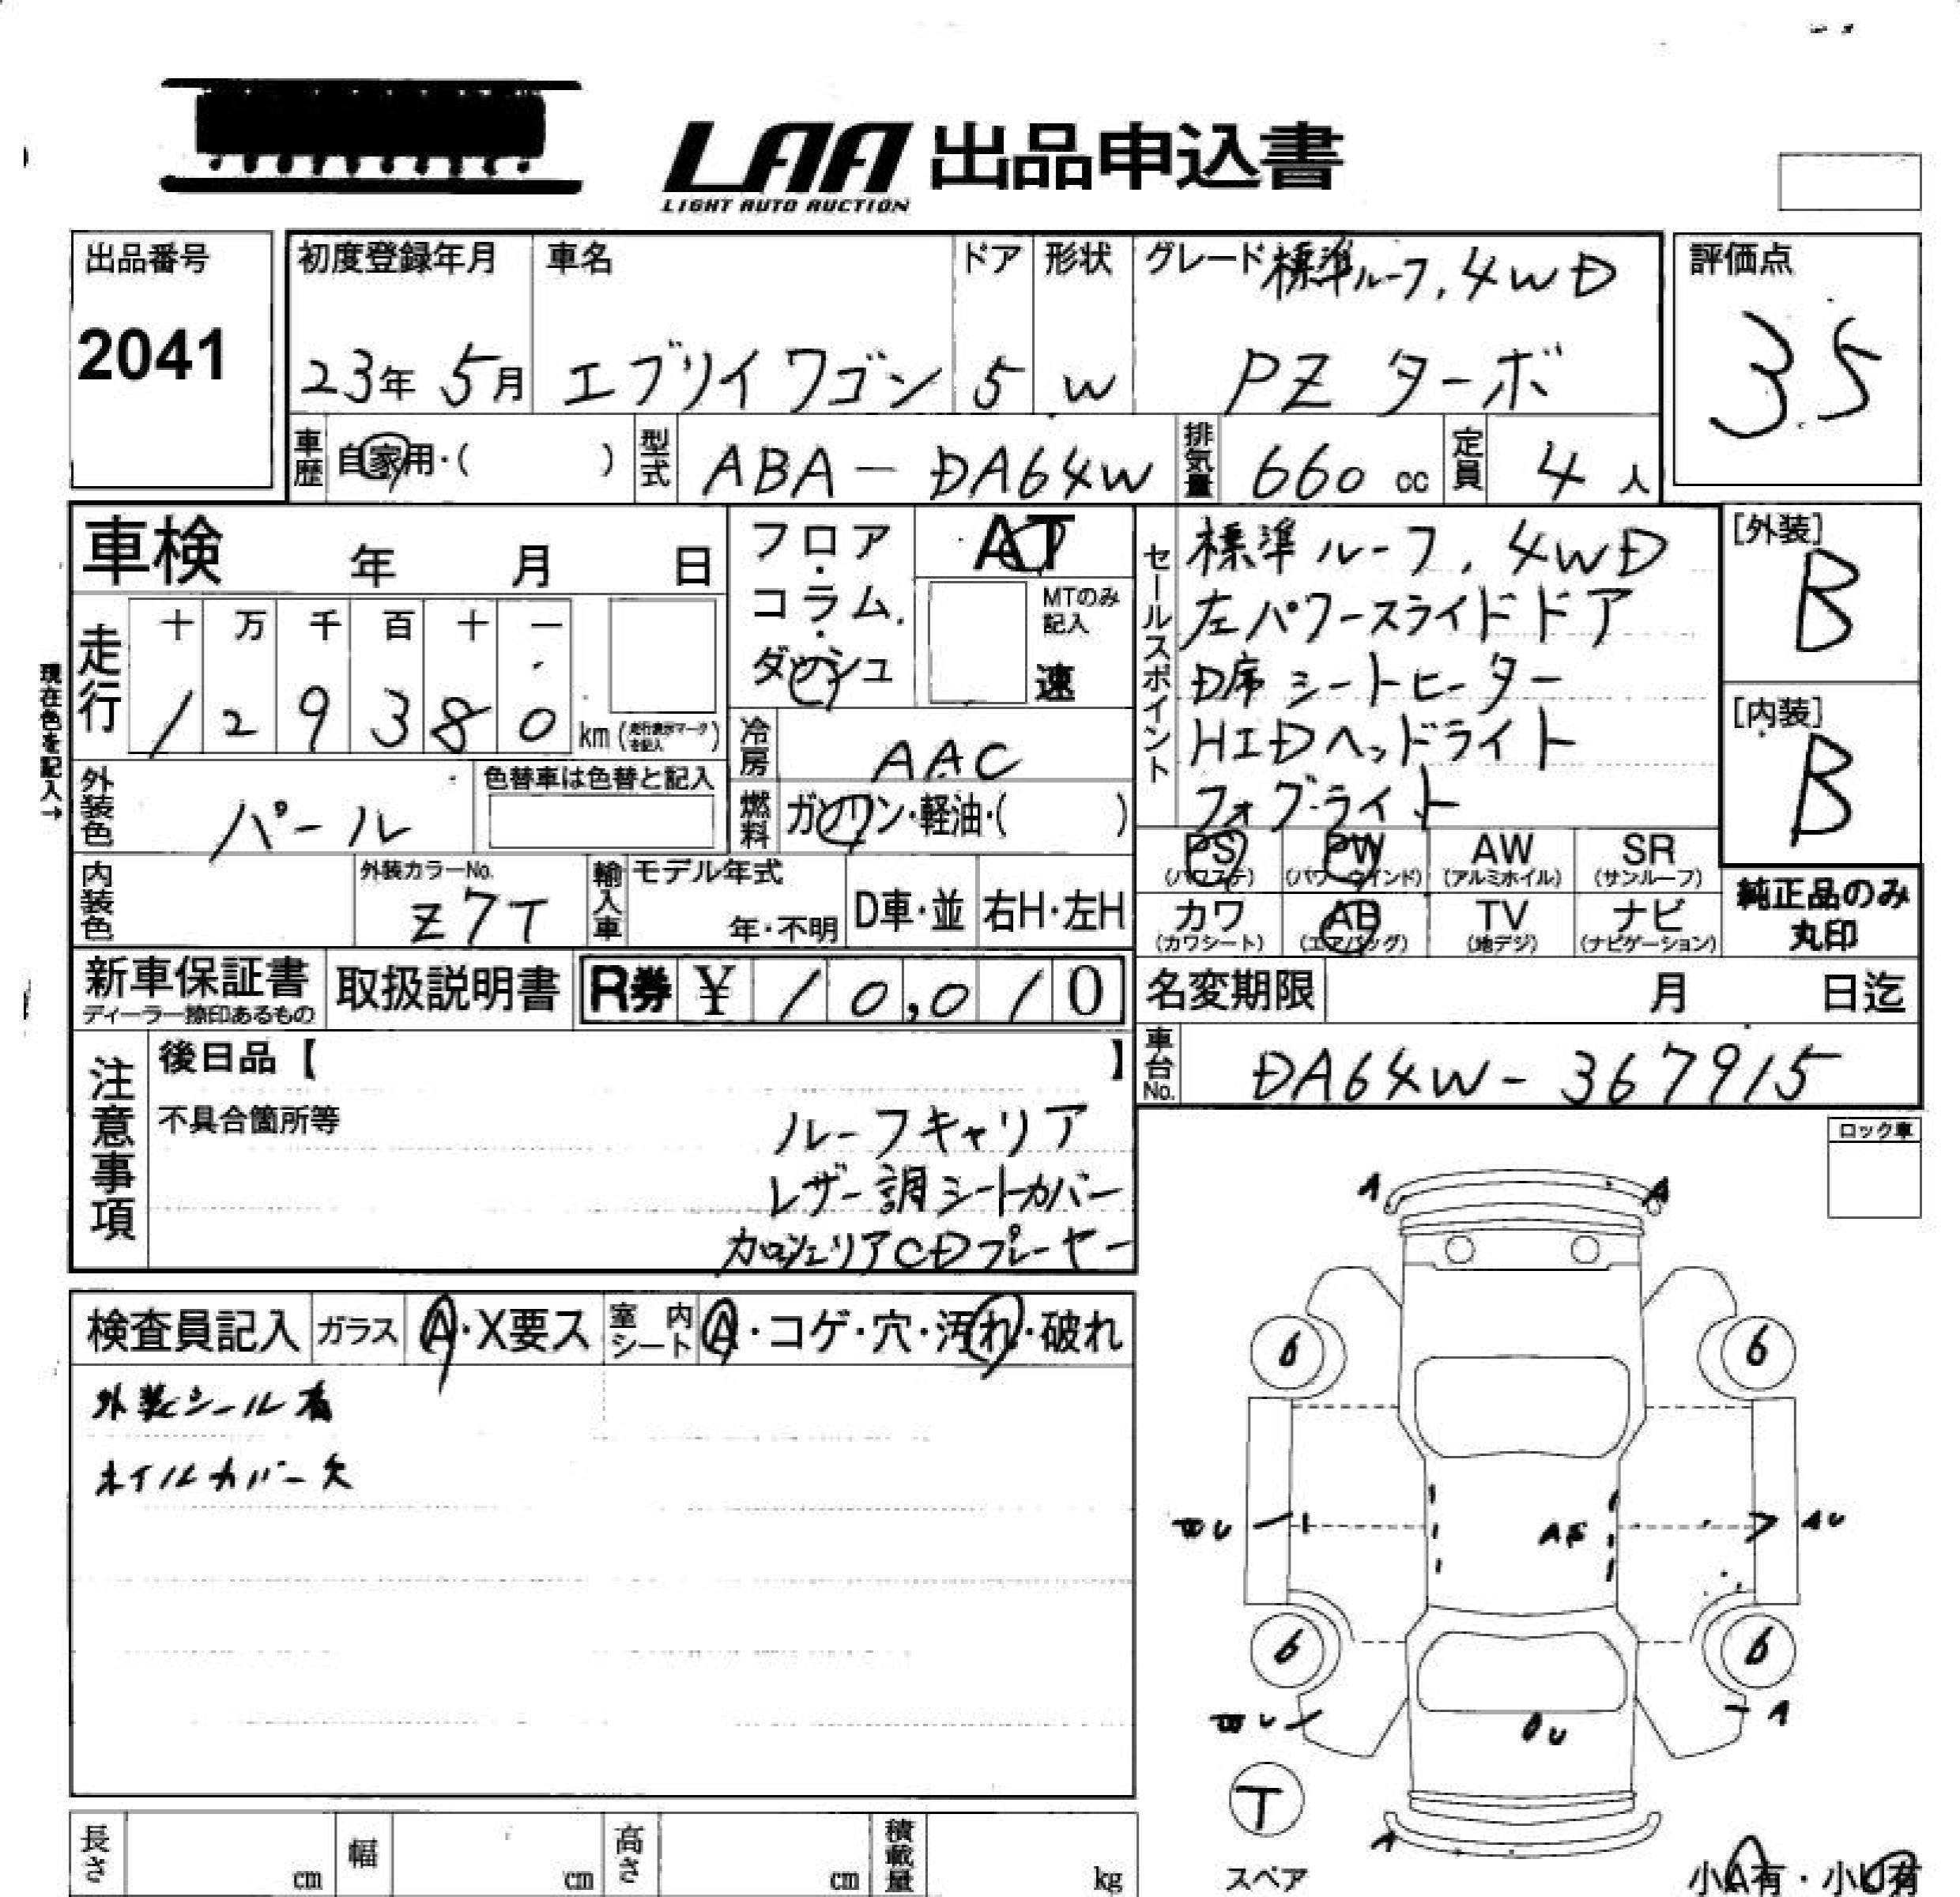 LAA 出品申込書
LIGHT AUTO AUCTION
出品番号
2041
初度登録年月
23年 5月
車名
エブリイワゴン
ドア
5
形状
W
グレード 標準ルーフ, 4WD
PZ ターボ
評価点
3.5
車歴
自家用・( )
型式
ABA-DA64W
排気量
660 cc
定員
4 人
車検 年 月 日
走行
十 万 千 百 十 一
1 2 9 3 8 0 km (走行表示マークを記入)
現在色を記入→
フロア・コラム・ダッシュ
AT
MTのみ記入
速
冷房
AAC
燃料
ガソリン・軽油・( )
セールスポイント
標準ルーフ, 4WD
左パワースライドドア
D席シートヒーター
HIDヘッドライト
フォグライト
[外装]
B
[内装]
B
外装色
パール
色替車は色替と記入
内装色
外装カラーNo.
Z7T
輸入車
モデル年式
年・不明
D車・並
右H・左H
PS (パワステ)
PW (パワーウインド)
AW (アルミホイル)
SR (サンルーフ)
カワ (カワシート)
AB (エアバッグ)
TV (地デジ)
ナビ (ナビゲーション)
純正品のみ
丸印
新車保証書
ディーラー捺印あるもの
取扱説明書
R券 ¥ 1 0,0 1 0
名変期限 月 日迄
車台No.
DA64W-367915
注意事項
後日品【 】
不具合箇所等
ルーフキャリア
レザー調シートカバー
カロッツェリアCDプレーヤー
ロック車
検査員記入
ガラス
A・X要ス
室内シート
A・コゲ・穴・汚れ・破れ
外装シール有
ホイルカバー欠
A
A
6
6
AU
6
6
A
T
スペア
A
小A有・小U有
長さ cm
幅 cm
高さ cm
積載量 kg